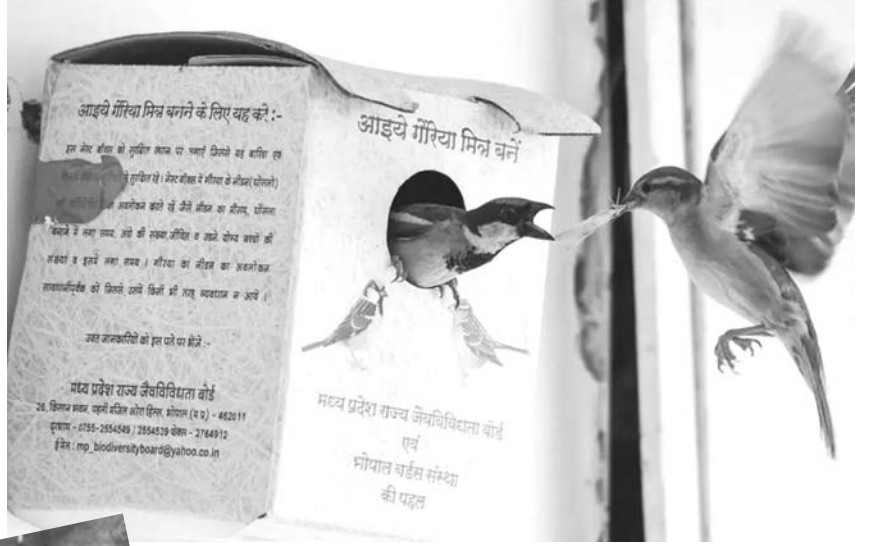 आइये गौरिया मित्र बनने के लिए यह करे :-
इस नेस्ट बॉक्स को सुरक्षित स्थान पर लगाएँ जिससे यह बारिश एवं
सुरक्षित रहे। नेस्ट बॉक्स में गौरया के नीडन(घोंसलो)
अवलोकन करते रहें जैसे नीडन का मौसम, घोंसला
बनाने में लगा समय, अंडो की संख्या,जीवित व उड़ने योग्य बच्चों की
संख्या व इसमें लगा समय । गौरया का नीडन का अवलोकन
सावधानीपूर्वक करे जिससे उसमे किसी भी तरह व्यवधान न आवे ।
उक्त जानकारियों को इस पते पर भेजे :-
मध्य प्रदेश राज्य जैवविविधता बोर्ड
26, किसान भवन, पहली मंजिल अरेरा हिल्स, भोपाल (म प्र) - 462011
दूरभाष - 0755-2554549 / 2554539 फेक्स - 2764912
ई मेल : mp_biodiversityboard@yahoo.co.in
आइये गौरिया मित्र बनें
मध्य प्रदेश राज्य जैवविविधता बोर्ड
एवं
भोपाल बर्डस संस्था
की पहल